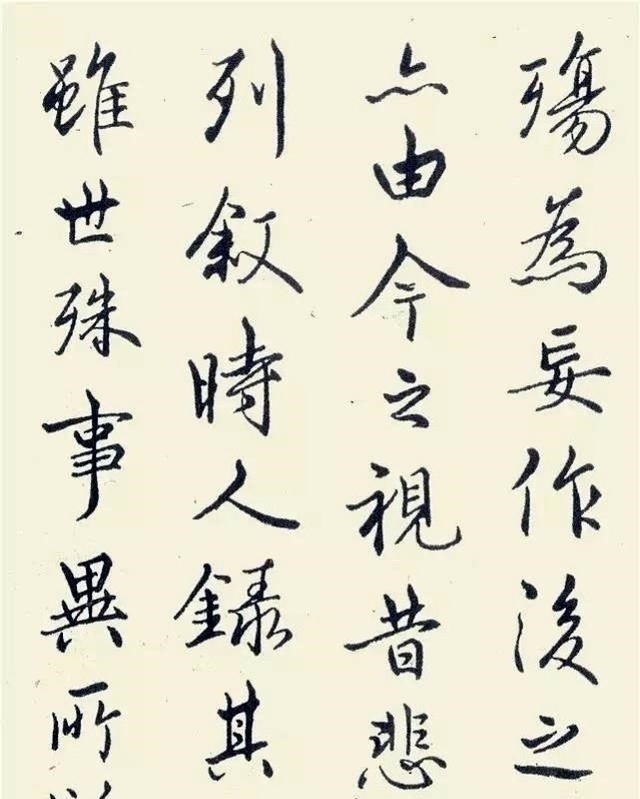 殤為妄作後之
亦由今之視昔悲
列叙時人錄其
雖世殊事異所